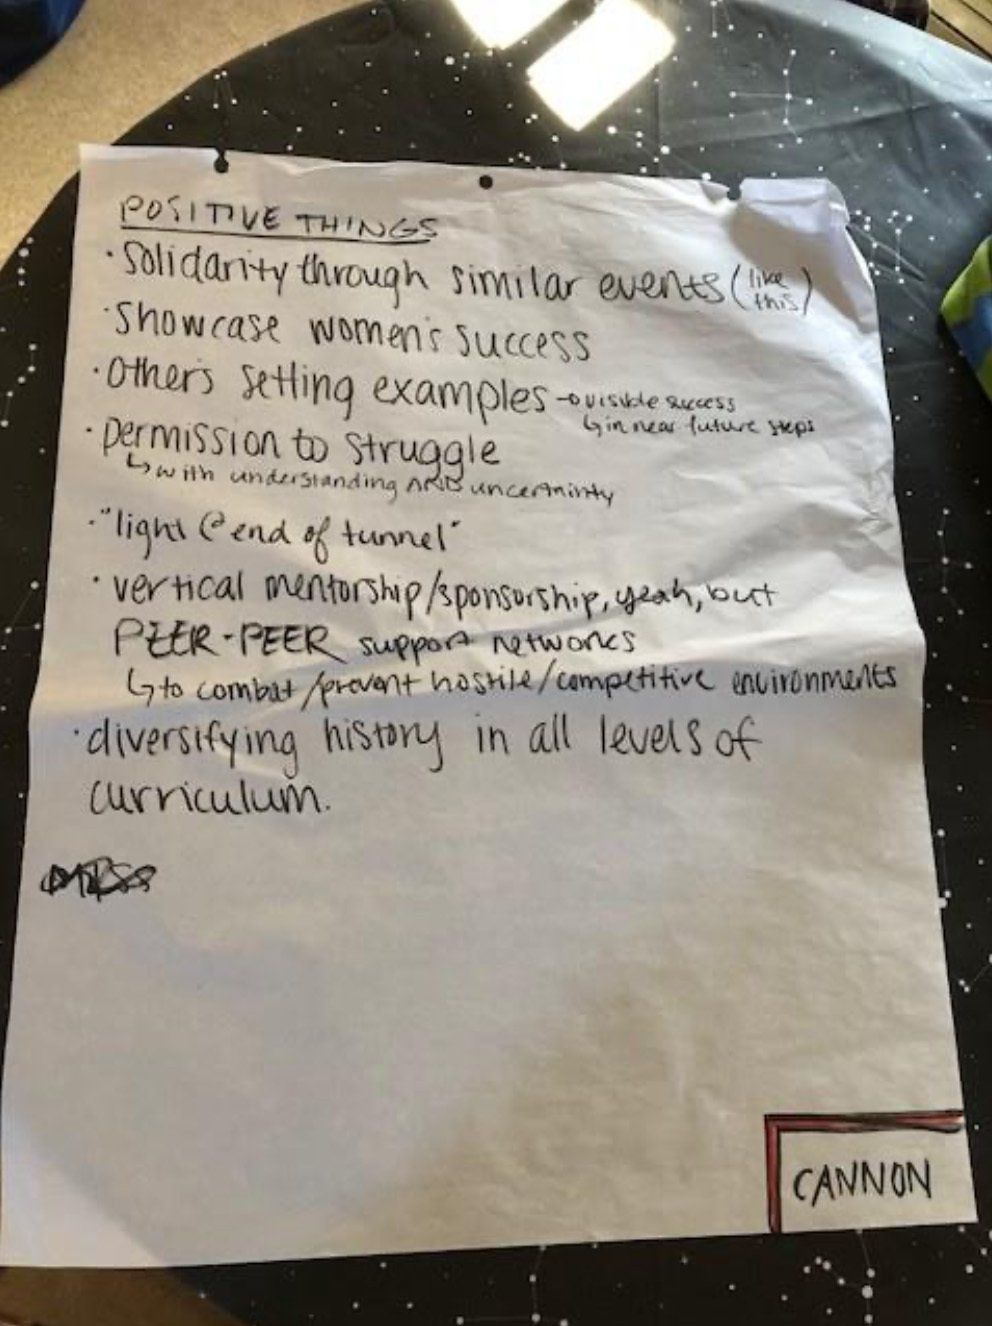 POSITIVE THINGS
· Solidarity through similar events (like this)
· Showcase women's success
· Others setting examples → visible success
↳ in near future steps
· permission to struggle
↳ with understanding AND uncertainty
· "light @ end of tunnel"
· vertical mentorship/sponsorship, yeah, but
PEER-PEER support networks
↳ to combat/prevent hostile/competitive environments
· diversifying history in all levels of
curriculum.
CANNON